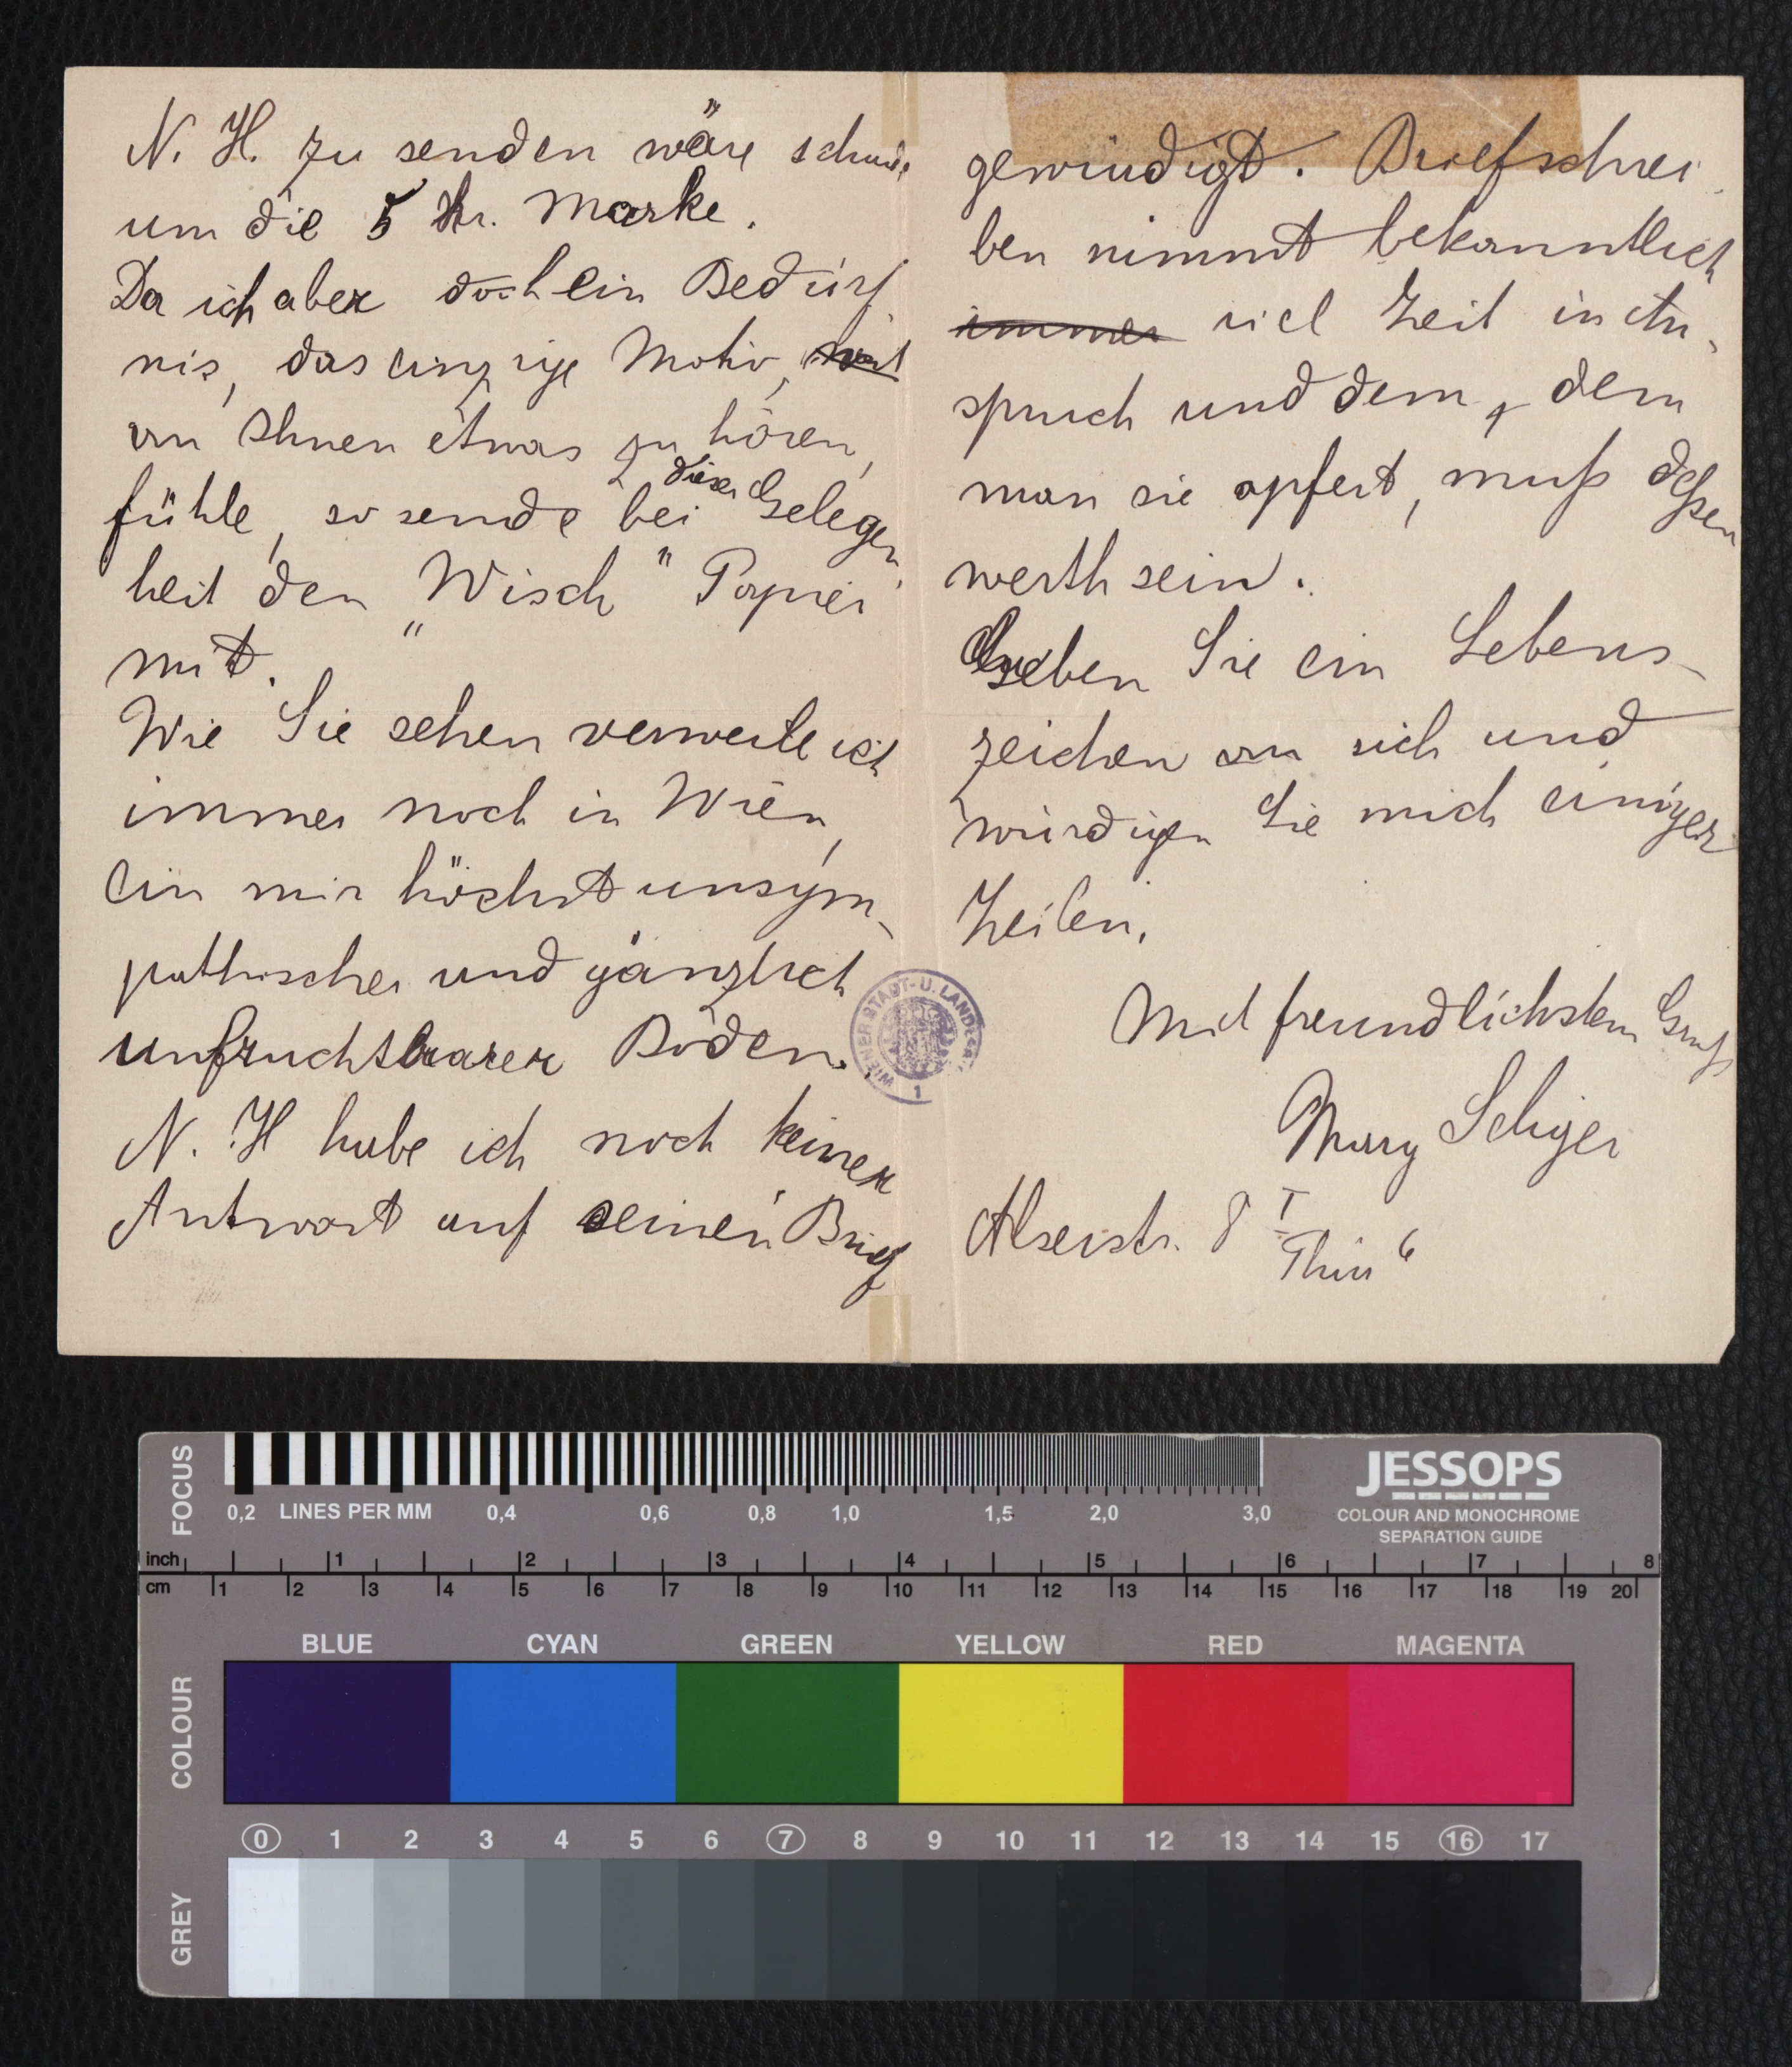 N. H. zu senden wäre schade
um die 5 Kr. Marke.
Da ich aber doch ein Bedürf
nis, das einzige Motiv,
von Ihnen etwas zu hören,
fühle, so sende bei dieser Gelegen
heit den „Wisch" Papier
mit.
Wie Sie sehen verweile ich
immer noch in Wien,
ein mir höchst unsym-
pathischer und gänzlich
unfruchtbarer Boden.
N. H habe ich noch keiner
Antwort auf seinen Brief
gewürdigt. Briefschrei
ben nimmt bekanntlich
immer viel Zeit in An-
spruch und dem, dem
man sie opfert, muß deßen
werth sein.
Geben Sie ein Lebens-
zeichen von sich und
würdigen Sie mich einiger
Zeilen.
Mit freundlichsten Gruß
Mary Seliger
Alserstr. 8 I
Thür 6
WIENER STADT- U. LANDES
1
FOCUS
0,2 LINES PER MM 0,4 0,6 0,8 1,0 1,5 2,0 3,0
JESSOPS
COLOUR AND MONOCHROME
SEPARATION GUIDE
inch 1 2 3 4 5 6 7 8
cm 1 2 3 4 5 6 7 8 9 10 11 12 13 14 15 16 17 18 19 20
BLUE CYAN GREEN YELLOW RED MAGENTA
COLOUR
0 1 2 3 4 5 6 7 8 9 10 11 12 13 14 15 16 17
GREY